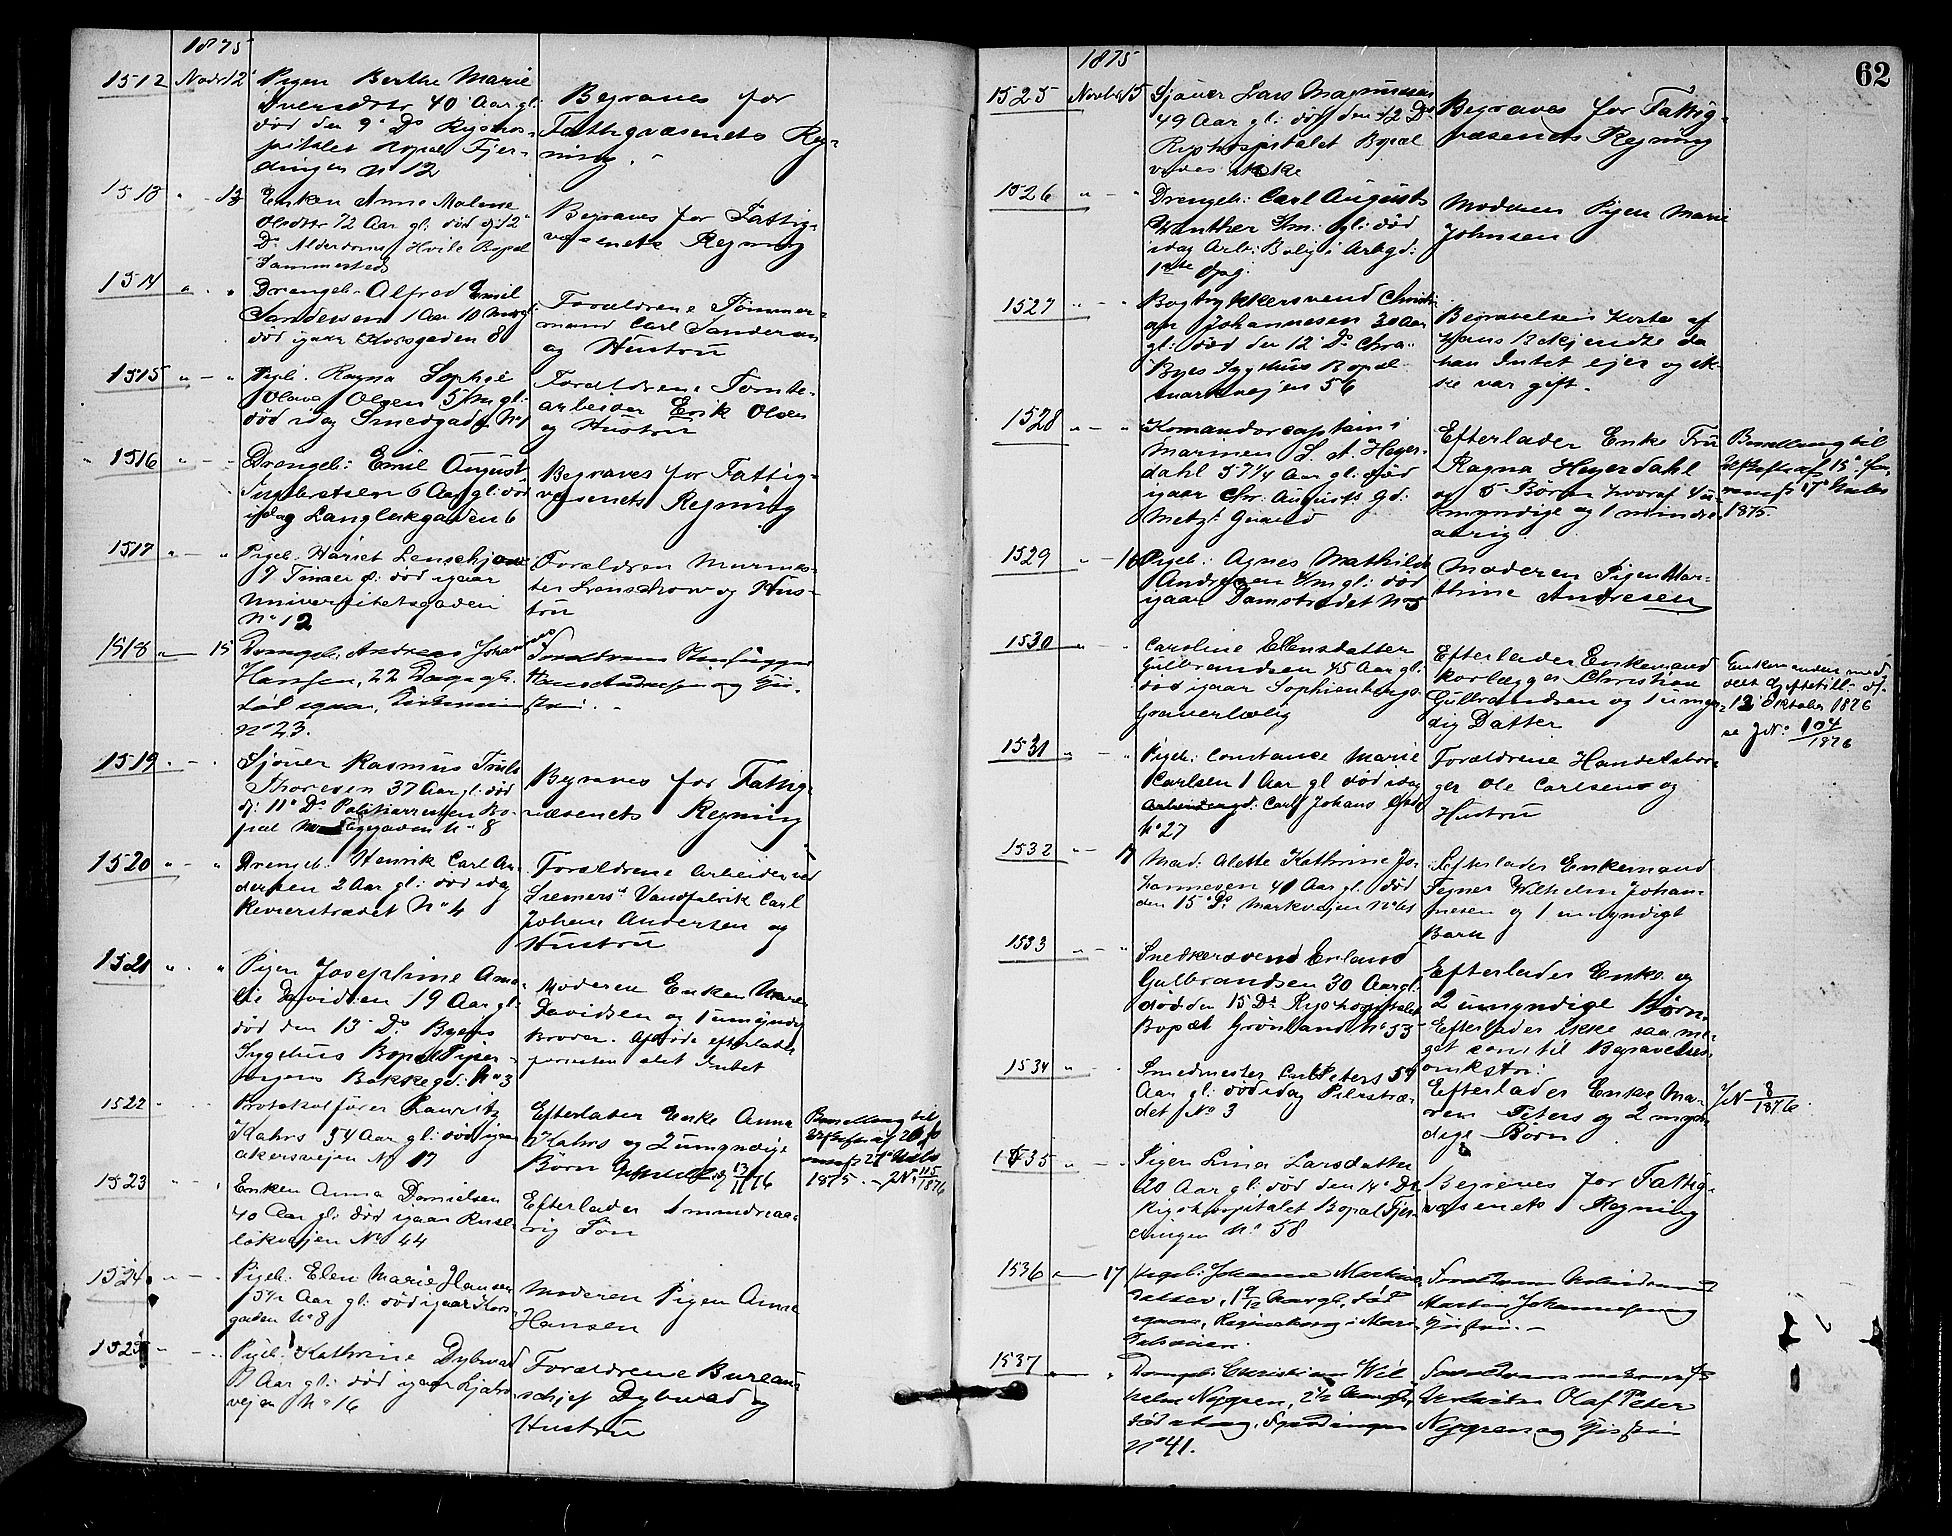 1875
1512 Novbr 12 Pigen Berthe Marie
Iversdtr 40 Aar gl:
død den 9' Ds Rigshos-
pitalet Bopæl Fjer-
dingen No 12
Begraves for
Fattigvæsenets Reg-
ning.
1513 " - 13 Enken Anne Malene
Olsdtr 72 Aar gl: død d: 12'
Ds Alderdoms Hvile Bopæl
Sammesteds
Begraves for Fattig-
væsenets Regning
1514 " - " Drengeb. Alfred Emil
Sandersen 1 Aar 10
død igaar Korsgaden 8
Forældrene Tømmer-
mand Carl Sandersen
og Hustru
1515 " - " Pigeb. Ragna Sophie
Olava Olsen 5/m gl:
død idag Smedgadg. No 1
Forældrene Tomte-
arbeider Erik Olsen
og Hustru
1516 " - " Drengeb: Emil August
6 Aar gl: død
idag Langleikgaden 6
Begraves for Fattig-
væsenets Regning
1517 " - " Pigeb. Hariet
7 Timer gl: død igaar
Universitetsgaden
No 12
Forældren Murmes-
ter Lenschow og Hus-
tru
1518 " - 15 Drengeb. Andreas Johan
Hansen, 22 Dage gl.
død igaar,
No 23.
Forældrene
Hans Andreasen og Hu-
stru. -
1519 " - " Sjouer Rasmus Truls
Thoresen 37 Aar gl: død
d: 11' Ds Politiarresten Bo-
pæl gaden No 8
Begraves for Fattig-
væsenets Regning
1520 " - " Drengeb. Henrik Carl An-
dersen 2 Aar gl: død idag
Revierstrædet No 4
Forældrene Arbeider ved
Siemers Vandfabrik Carl
Johan Andersen og
Hustru
1521 " - " Pigen Josephine Ama-
lie Davidsen 19 Aar gl:
død den 13' Ds Byens
Sygehus Bopæl
Bakkegd. No 3
Moderen Enken
Davidsen og 1 umyndig
Broder. Afdøde efterlader
forresten slet Intet
1522 " - " Protokolfører Lauritz
Kahrs 54 Aar gl: død igaar
Akersvejen No 17
Efterlader Enke Anna
Kahrs og 2 umyndige
Børn 13/11 76
Bevilling til
Uskifte af 20'
27' Novbr
1875. - JNo 115/1876
1523 " - " Enken Anna Danielsen
40 Aar gl: død igaar Rusel-
løkvejen No 44
Efterlader 1 mindreaa-
rig Søn
1524 " - " Pigeb. Elen Marie Hansen
5 1/2 Aar gl: død igaar Kors-
gaden No 8
Moderen Pigen Anna
Hansen
1525 " - " Pigeb. Kathrine Dybwad
Aar gl: død igaar Ljabro-
vejen No 16
Forældrene Bureau-
schef Dybwad og
Hustru
62
1875
1525 Novbr 15 Sjouer Lars Magnussen
49 Aar gl: død den 12 Ds
Rigshospitalet Bopæl
vides ikke
Begraves for Fattig-
væsenets Regning
1526 " - " Drengeb: Carl August
Winther /m: gl: død
idag Arb: Bolig i Arbgd:
1ste Opg:
Moderen Pigen Marie
Johnsen
1527 " - " Bogtrykkersvend Christi-
an Johannesen 30 Aar
gl: død den 12' Ds Chra
Byes Sygehus Bopæl
Markvejen 56
Begravelsen Kostes af
hans Bekjendte da
han Intet ejer og ik-
ke var gift.
1528 " - " Komandørcaptain i
Marinen L A Heyer-
dahl 57 1/4 Aar gl: død
igaar Chr: Augusts Gd:
Metz: Gaard
Efterlader Enke Fru
Ragna Heyerdahl
og 5 Børn hvoraf 4 u-
myndige og 1 mindre-
aarig
Bevilling til
Uskifte af 15'
17' Novbr
1875.
1529 " - 16 Pigeb: Agnes Mathilde
Andresen /m gl: død
igaar Damstrædet No 5
Moderen Pigen Mar-
thine Andresen
1530 " - " Caroline Ellensdatter
Gulbrandsen 45 Aar gl:
død igaar Sophienbergs
Graverbolig
Efterlader Enkemand
Korlægger Christian
Gulbrandsen og 1 umyn-
dig Datter
Enkemanden med-
delt Egteskifte
12' Oktober 1876
se JNo 104/1876
1531 " - " Pigeb: Constance Marie
Carlsen 1 Aar gl: død idag
Carl Johans Gade
No 27
Forældrene Handelsbor-
ger Ole Carlsen og
Hustru
1532 " - 17 Mad. Alette Kathrine Jo-
hannesen 40 Aar gl: død
den 15' Ds Markvejen No 61
Efterlader Enkemand
Tegner Wilhelm Johan-
nesen og 1 umyndigt
Barn
1533 " - " Snedkersvend Erland
Gulbrandsen 30 Aar gl:
død den 15 Ds Rigshospitalet
Bopæl Grønland No 53
Efterlader Enke og
2 umyndige Børn.
Efterlader ikke saa me-
get som til Begravelses-
omkstn:
1534 " - " Smedmester Carl Peters 54
Aar gl: død idag Pilestræ-
det No 3
Efterlader Enke Ma-
ren Peters og 2 myn-
dige Børn
JNo 8/1876.
1535 " - " Pigen Lina Larsdatter
20 Aar gl: død den 14' Ds
Rigshospitalet Bopæl Fjer-
dingen No 58
Begraves for Fattig-
væsenets Regning
1536 " - 17 Pigeb. Johanne
1 9/12 Aar gl., død
igaar,
Forældrene
Martin Johannesen og
Hustru. -
1537 " - " Drengeb. Christian Wil-
helm Nygren, 2 1/2 Aar gl,
død idag,
No 41.
Forældrene
Olaf Peter
Nygren og Hustru